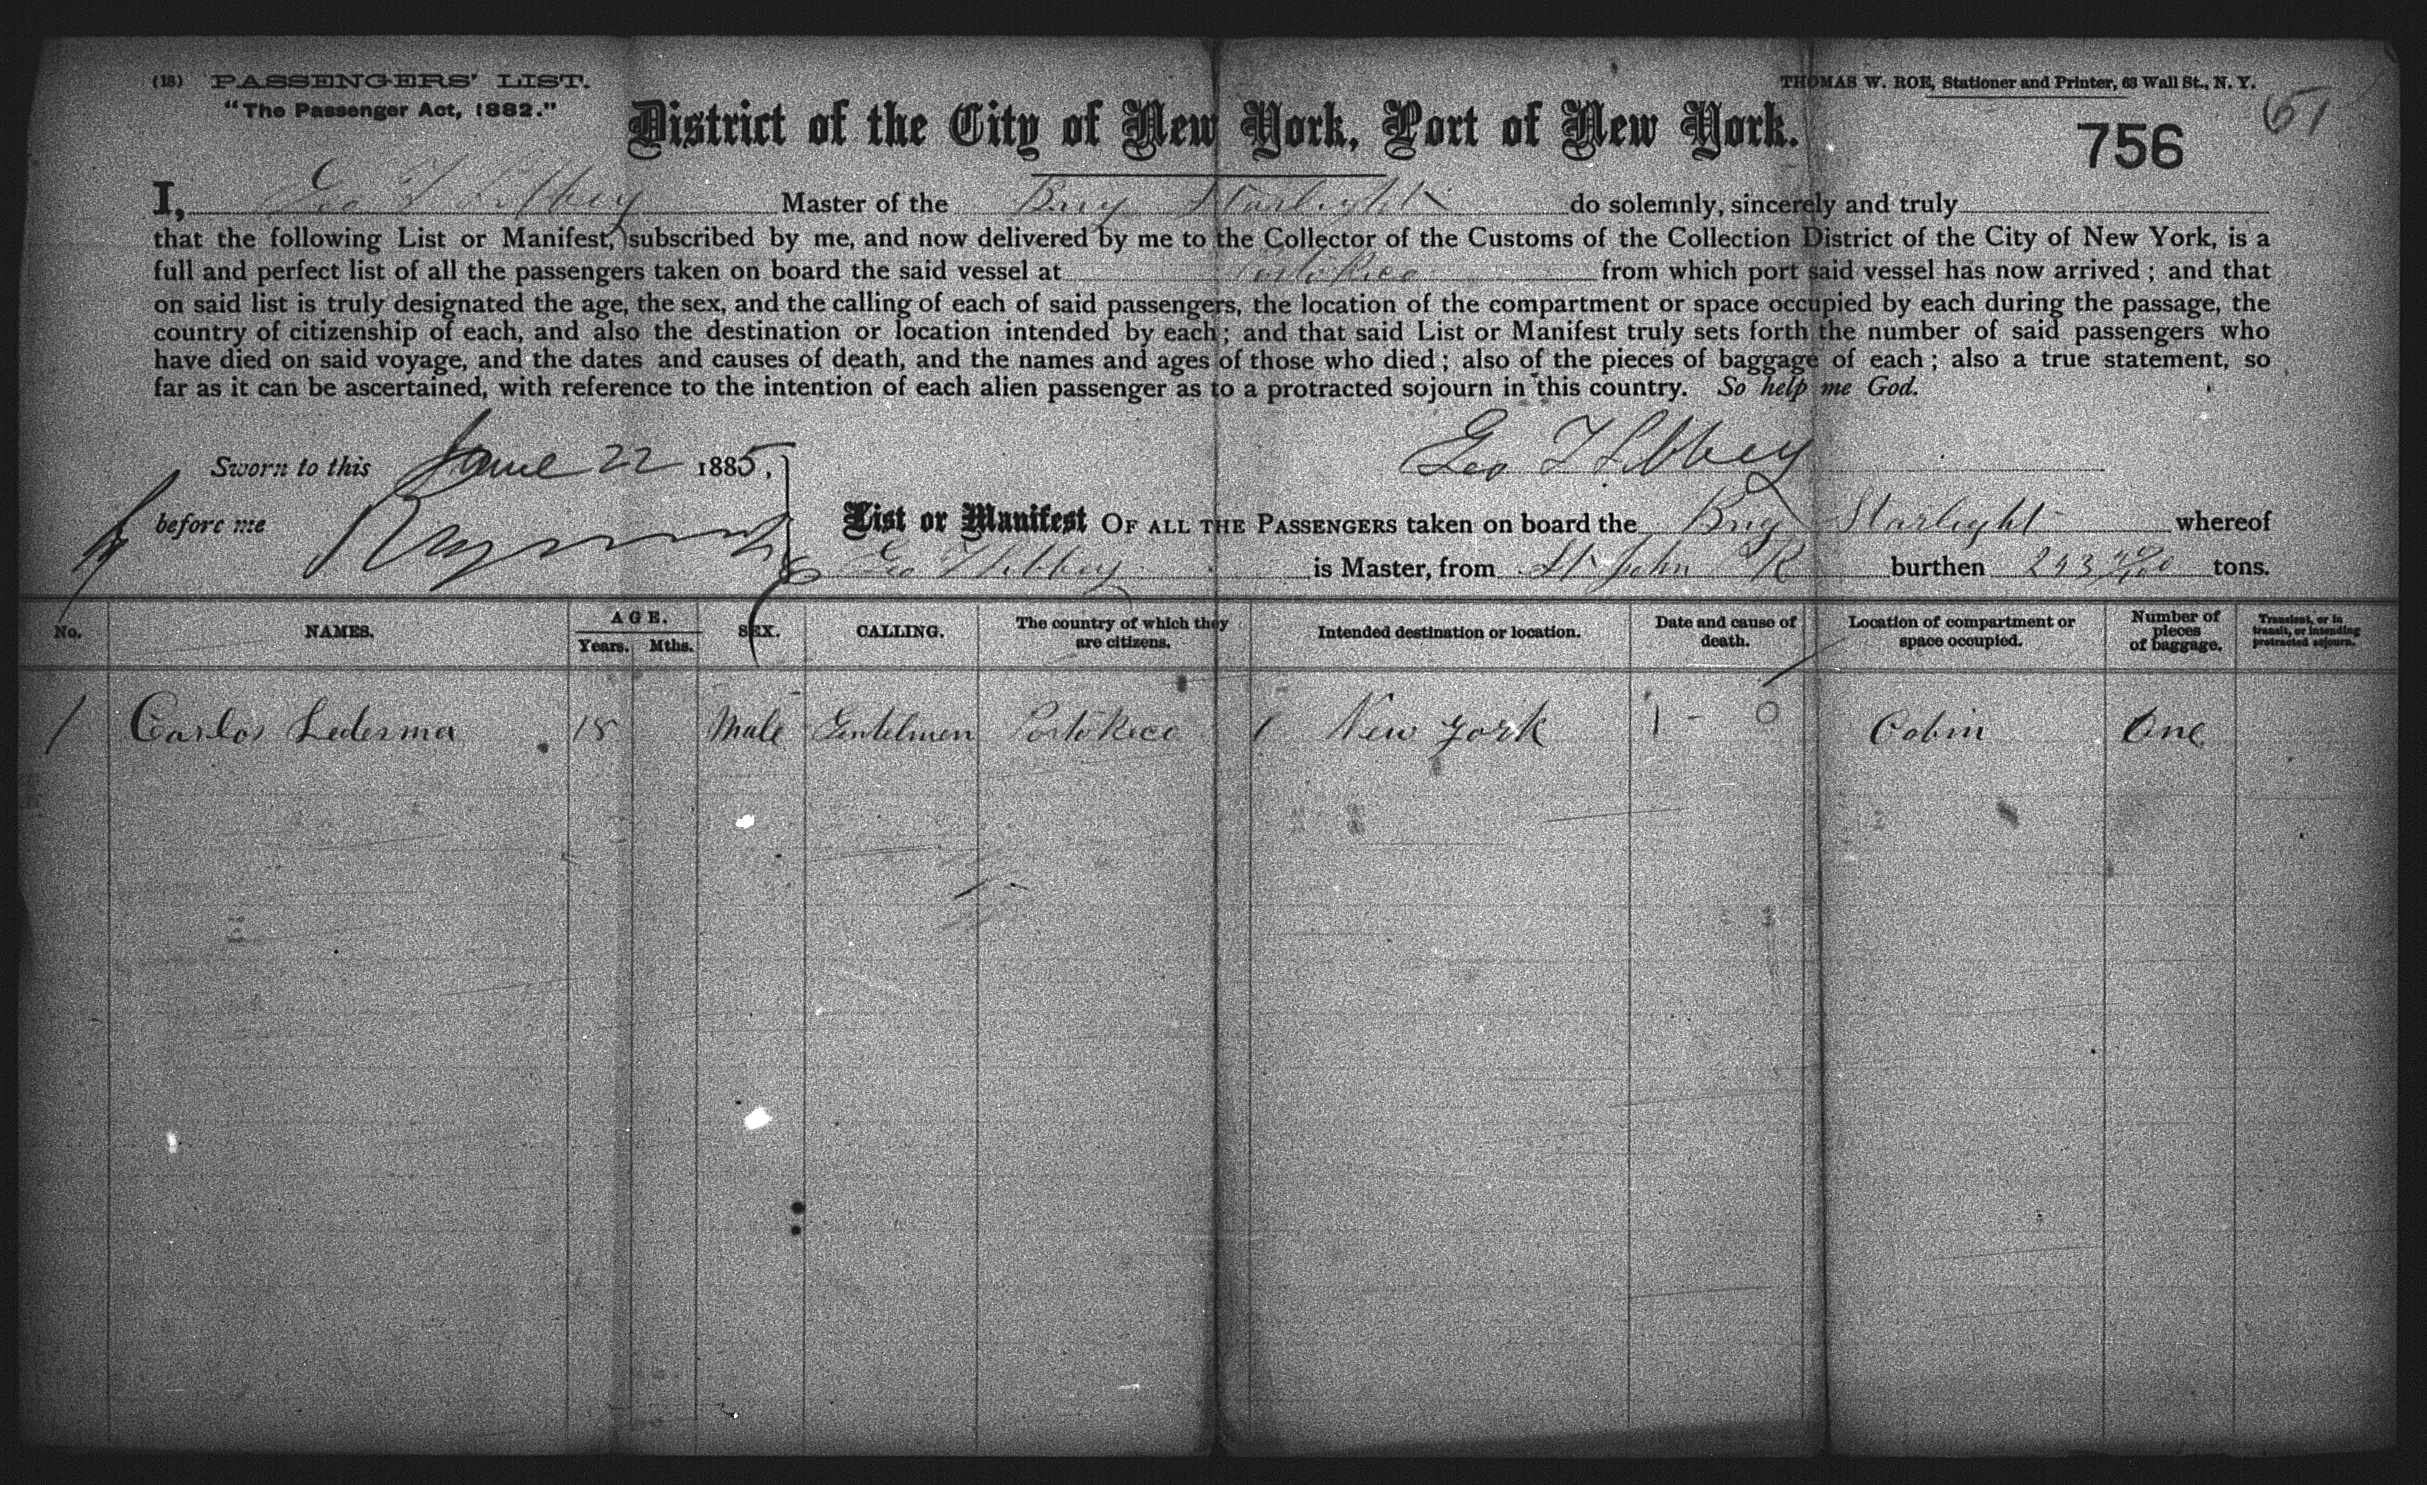 (18) PASSENGERS' LIST.
"The Passenger Act, 1882."
THOMAS W. ROE, Stationer and Printer, 63 Wall St., N. Y.
51
District of the City of New York, Port of New York.
756
I, Geo F Libbey Master of the Brig Starlight do solemnly, sincerely and truly
that the following List or Manifest, subscribed by me, and now delivered by me to the Collector of the Customs of the Collection District of the City of New York, is a
full and perfect list of all the passengers taken on board the said vessel at Porto Rico from which port said vessel has now arrived; and that
on said list is truly designated the age, the sex, and the calling of each of said passengers, the location of the compartment or space occupied by each during the passage, the
country of citizenship of each, and also the destination or location intended by each; and that said List or Manifest truly sets forth the number of said passengers who
have died on said voyage, and the dates and causes of death, and the names and ages of those who died; also of the pieces of baggage of each; also a true statement, so
far as it can be ascertained, with reference to the intention of each alien passenger as to a protracted sojourn in this country. So help me God.
Sworn to this June 22 1885,
Geo F Libbey
before me
List or Manifest OF ALL THE PASSENGERS taken on board the Brig Starlight whereof
Geo F Libbey is Master, from St John P R burthen 243 tons.
No. NAMES. AGE. Years. Mths. SEX. CALLING. The country of which they are citizens. Intended destination or location. Date and cause of death. Location of compartment or space occupied. Number of pieces of baggage. Transient, or in transit, or intending protracted sojourn.
1 Carlos Ledesma 18 Male Gentelmen Porto Rico New York Cabin One